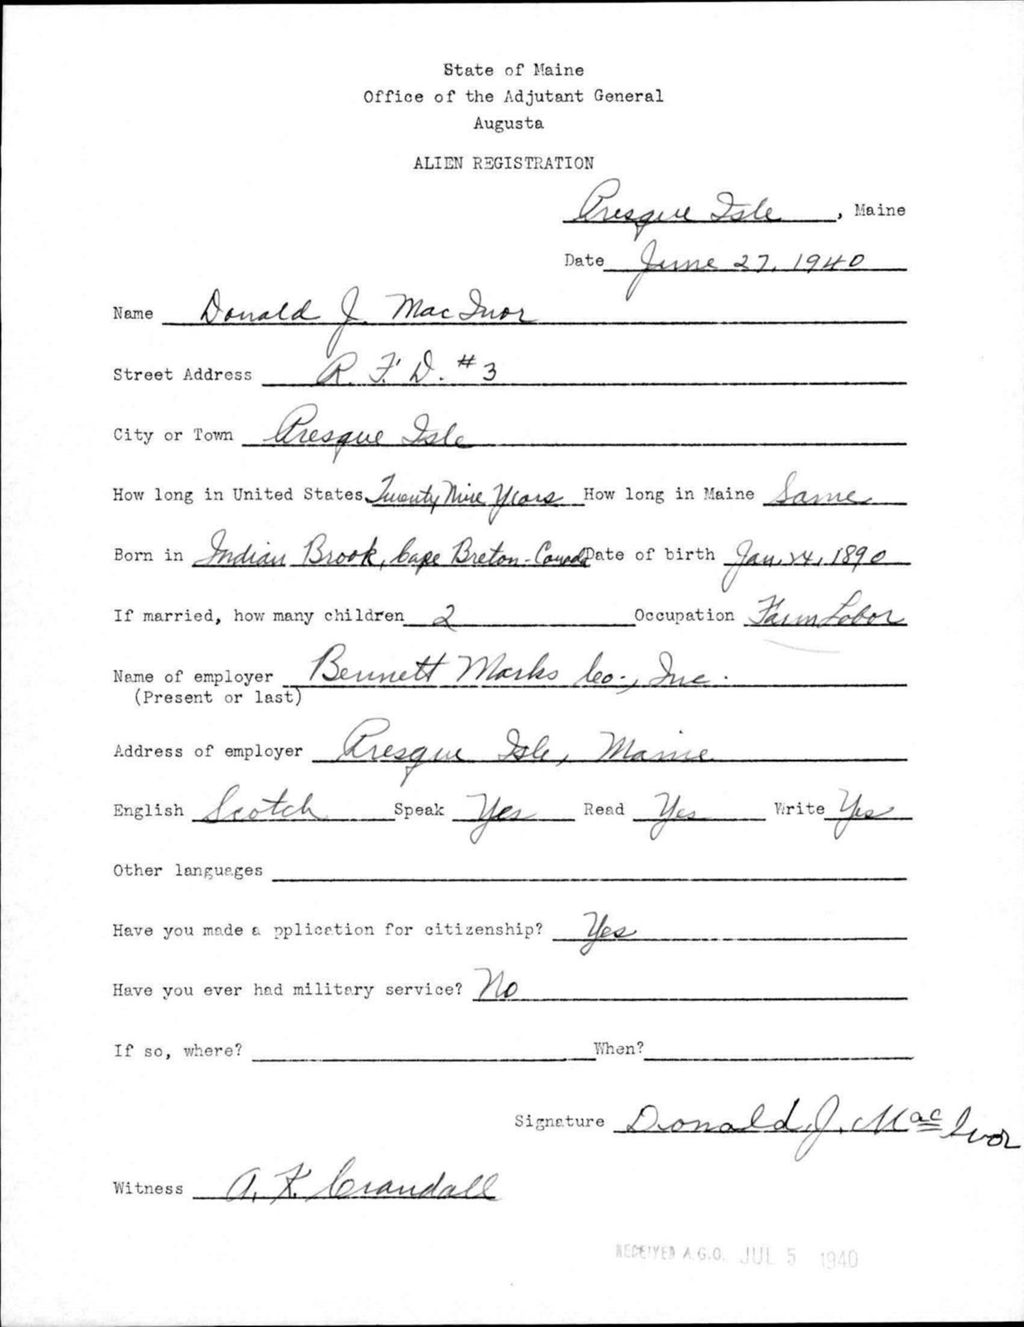 State of Maine
Office of the Adjutant General
Augusta
ALIEN REGISTRATION
Presque Isle, Maine
Date June 27, 1940
Name Donald J. MacIvor
Street Address R. F. D. #3
City or Town Presque Isle
How long in United States Twenty Nine Years How long in Maine Same
Born in Indian Brook, Cape Breton-Canada Date of birth Jan. 24, 1890
If married, how many children 2 Occupation Farm Labor
Name of employer Bennett Marks Co., Inc.
(Present or last)
Address of employer Presque Isle, Maine
English Scotch Speak Yes Read Yes Write Yes
Other languages
Have you made a pplication for citizenship? Yes
Have you ever had military service? No
If so, where? When?
Signature Donald J. MacIvor
Witness A. K. Crandall
RECEIVED A.G.O. JUL 5 1940